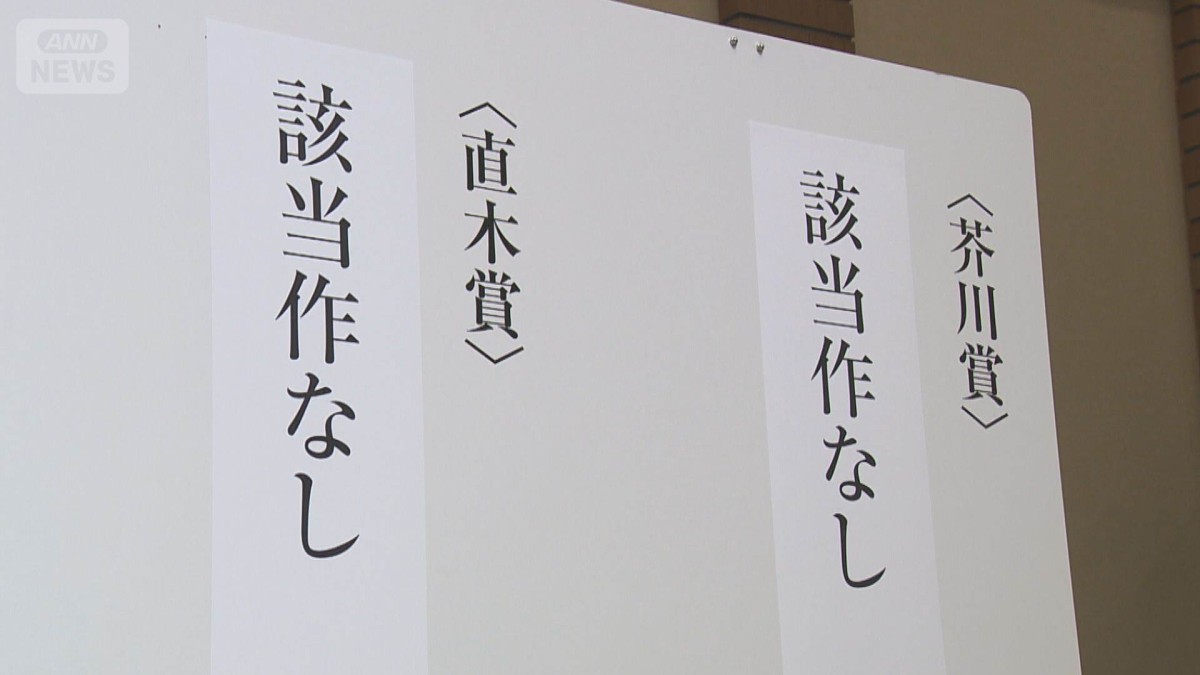 〈芥川賞〉
該当作なし
〈直木賞〉
該当作なし
ANN
NEWS